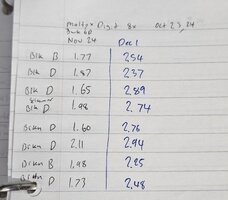 Maltyx Digit 8x Oct 23, 24
6P
Nov 24 Dec 1
Blk B 1.77 2.54
Blk D 1.87 2.37
Blk D 1.65 2.89
Blk D 1.98 2.74
Brkn D 1.60 2.76
Brkn D 2.11 2.94
Brkn B 1.98 2.25
Brkn D 1.73 2.48